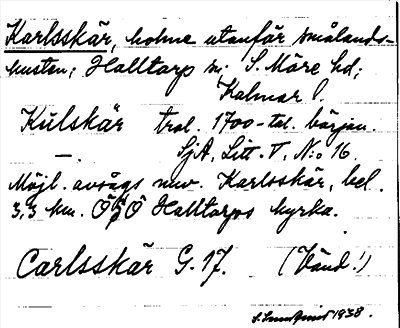 Karlsskär, holme utanför Smålands-
kusten; Halltorp sn. S. Möre hd;
Kalmar l.
Kulskär trol. 1700-tal. början.
— SjA, Litt. T, N:o 16
Möjl. avsågs nuv. Karlsskär, bel.
3,3 km. ÖSÖ Halltorps kyrka.
Carlsskär G. 17. (Vänd!)
1938.